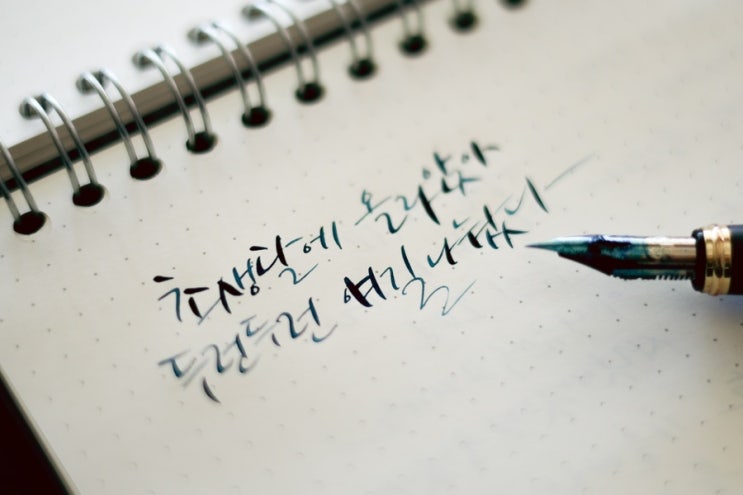 초생달에 올라앉아
두런두런 여길 납니다